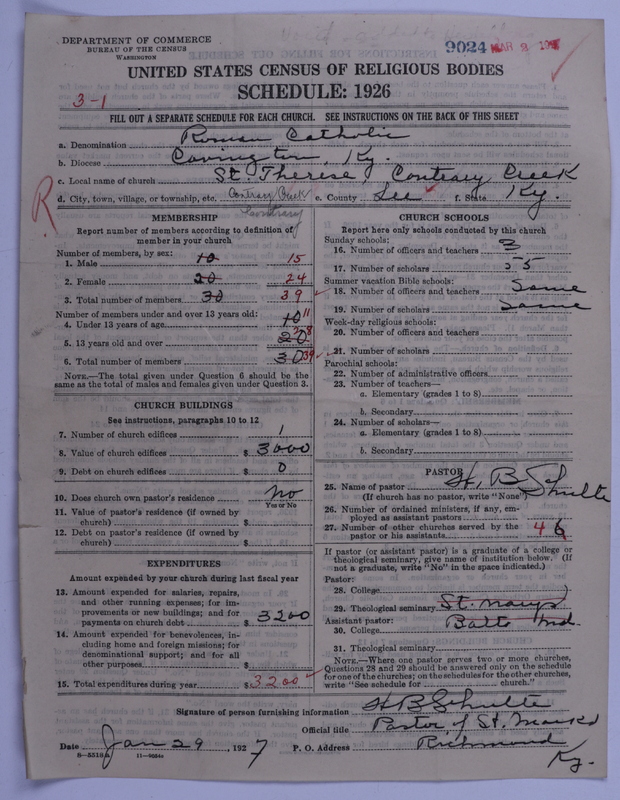 DEPARTMENT OF COMMERCE
BUREAU OF THE CENSUS
WASHINGTON
9024 MAR 2
UNITED STATES CENSUS OF RELIGIOUS BODIES
SCHEDULE: 1926
3-1
FILL OUT A SEPARATE SCHEDULE FOR EACH CHURCH. SEE INSTRUCTIONS ON THE BACK OF THIS SHEET
a. Denomination Roman Catholic
b. Diocese Covington, Ky.
c. Local name of church St. Therese, Contrary Creek
d. City, town, village, or township, etc. Contrary Creek e. County Lee f. State Ky.
Contrary
R
MEMBERSHIP
Report number of members according to definition of
member in your church
Number of members, by sex:
1. Male 10 15
2. Female 20 24
3. Total number of members 30 39
Number of members under and over 13 years old:
4. Under 13 years of age 10 11
5. 13 years old and over 20 28
6. Total number of members 30 39
NOTE.—The total given under Question 6 should be
same as the total of males and females given under Question 3.
CHURCH BUILDINGS
See instructions, paragraphs 10 to 12
7. Number of church edifices 1
8. Value of church edifices $ 3000
9. Debt on church edifices $ 0
10. Does church own pastor's residence No
Yes or No
11. Value of pastor's residence (if owned by
church) $
12. Debt on pastor's residence (if owned by
church) $
EXPENDITURES
Amount expended by your church during last fiscal year
13. Amount expended for salaries, repairs,
and other running expenses; for im-
provements or new buildings; and for
payments on church debt $ 3200
14. Amount expended for benevolences, in-
cluding home and foreign missions; for
denominational support; and for all
other purposes $
15. Total expenditures during year $ 3200
CHURCH SCHOOLS
Report here only schools conducted by this church
Sunday schools:
16. Number of officers and teachers 3
17. Number of scholars 55
Summer vacation Bible schools:
18. Number of officers and teachers Same
19. Number of scholars Same
Week-day religious schools:
20. Number of officers and teachers
21. Number of scholars
Parochial schools:
22. Number of administrative officers
23. Number of teachers—
a. Elementary (grades 1 to 8)
b. Secondary
24. Number of scholars—
a. Elementary (grades 1 to 8)
b. Secondary
PASTOR
25. Name of pastor H. B. Schulte
(If church has no pastor, write "None")
26. Number of ordained ministers, if any, em-
ployed as assistant pastors
27. Number of other churches served by the
pastor or his assistants 4 6
If pastor (or assistant pastor) is a graduate of a college or
theological seminary, give name of institution below. (If
not a graduate, write "No" in the space indicated.)
Pastor:
28. College
29. Theological seminary St. Marys
Assistant pastor: Balto Md.
30. College
31. Theological seminary
NOTE.—Where one pastor serves two or more churches,
Questions 28 and 29 should be answered only on the schedule
for one of the churches; on the schedules for the other churches,
write "See schedule for church."
Signature of person furnishing information H B Schulte
Official title Pastor of St. Marks
Date Jan 29, 1927 P. O. Address Richmond
Ky.
8-5519a 11-9024c